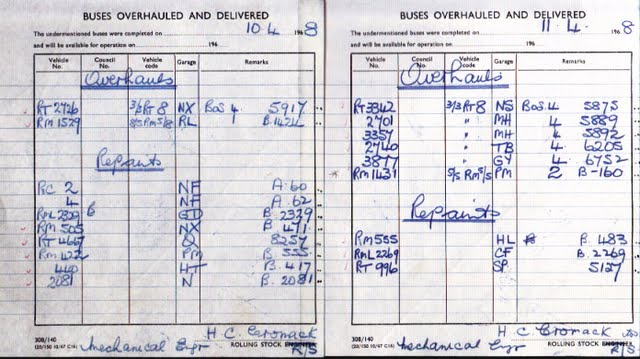 BUSES OVERHAULED AND DELIVERED
The undermentioned buses were completed on 10.4 1968
and will be available for operation on 196
Vehicle No. Council No. Vehicle code Garage Remarks
Overhauls
RT 2726 3/3 RT 8 NX Bos 4 5917
RM 1529 RL B.1422
Repaints
RC 2 NF A.60
4 NF A.62
RML 2329 B GD B.2329
RM 505 NX B.471
RT 4667 Q 8257
RM 422 PM B.555
440 HT B.417
2081 N B.2081
H. C. Cromack
308/140
Mechanical Engr ROLLING STOCK ENGINEER
R/S
BUSES OVERHAULED AND DELIVERED
The undermentioned buses were completed on 11.4. 1968
and will be available for operation on 196
Vehicle No. Council No. Vehicle code Garage Remarks
Overhauls
RT 3342 3/3 RT 8 NS Bos 4 5875
2701 " MH 4 5889
3357 " MH 4 5892
2740 " TB 4 6205
3877 " GY 4 6752
RM 1431 5/5 RM 5/8 PM 2 B-160
Repaints
RM 555 HL B.483
RML 2269 CF B.2269
RT 996 SP 5127
H C Cromack
308/140
Mechanical Engr ROLLING STOCK ENGINEER
R/S